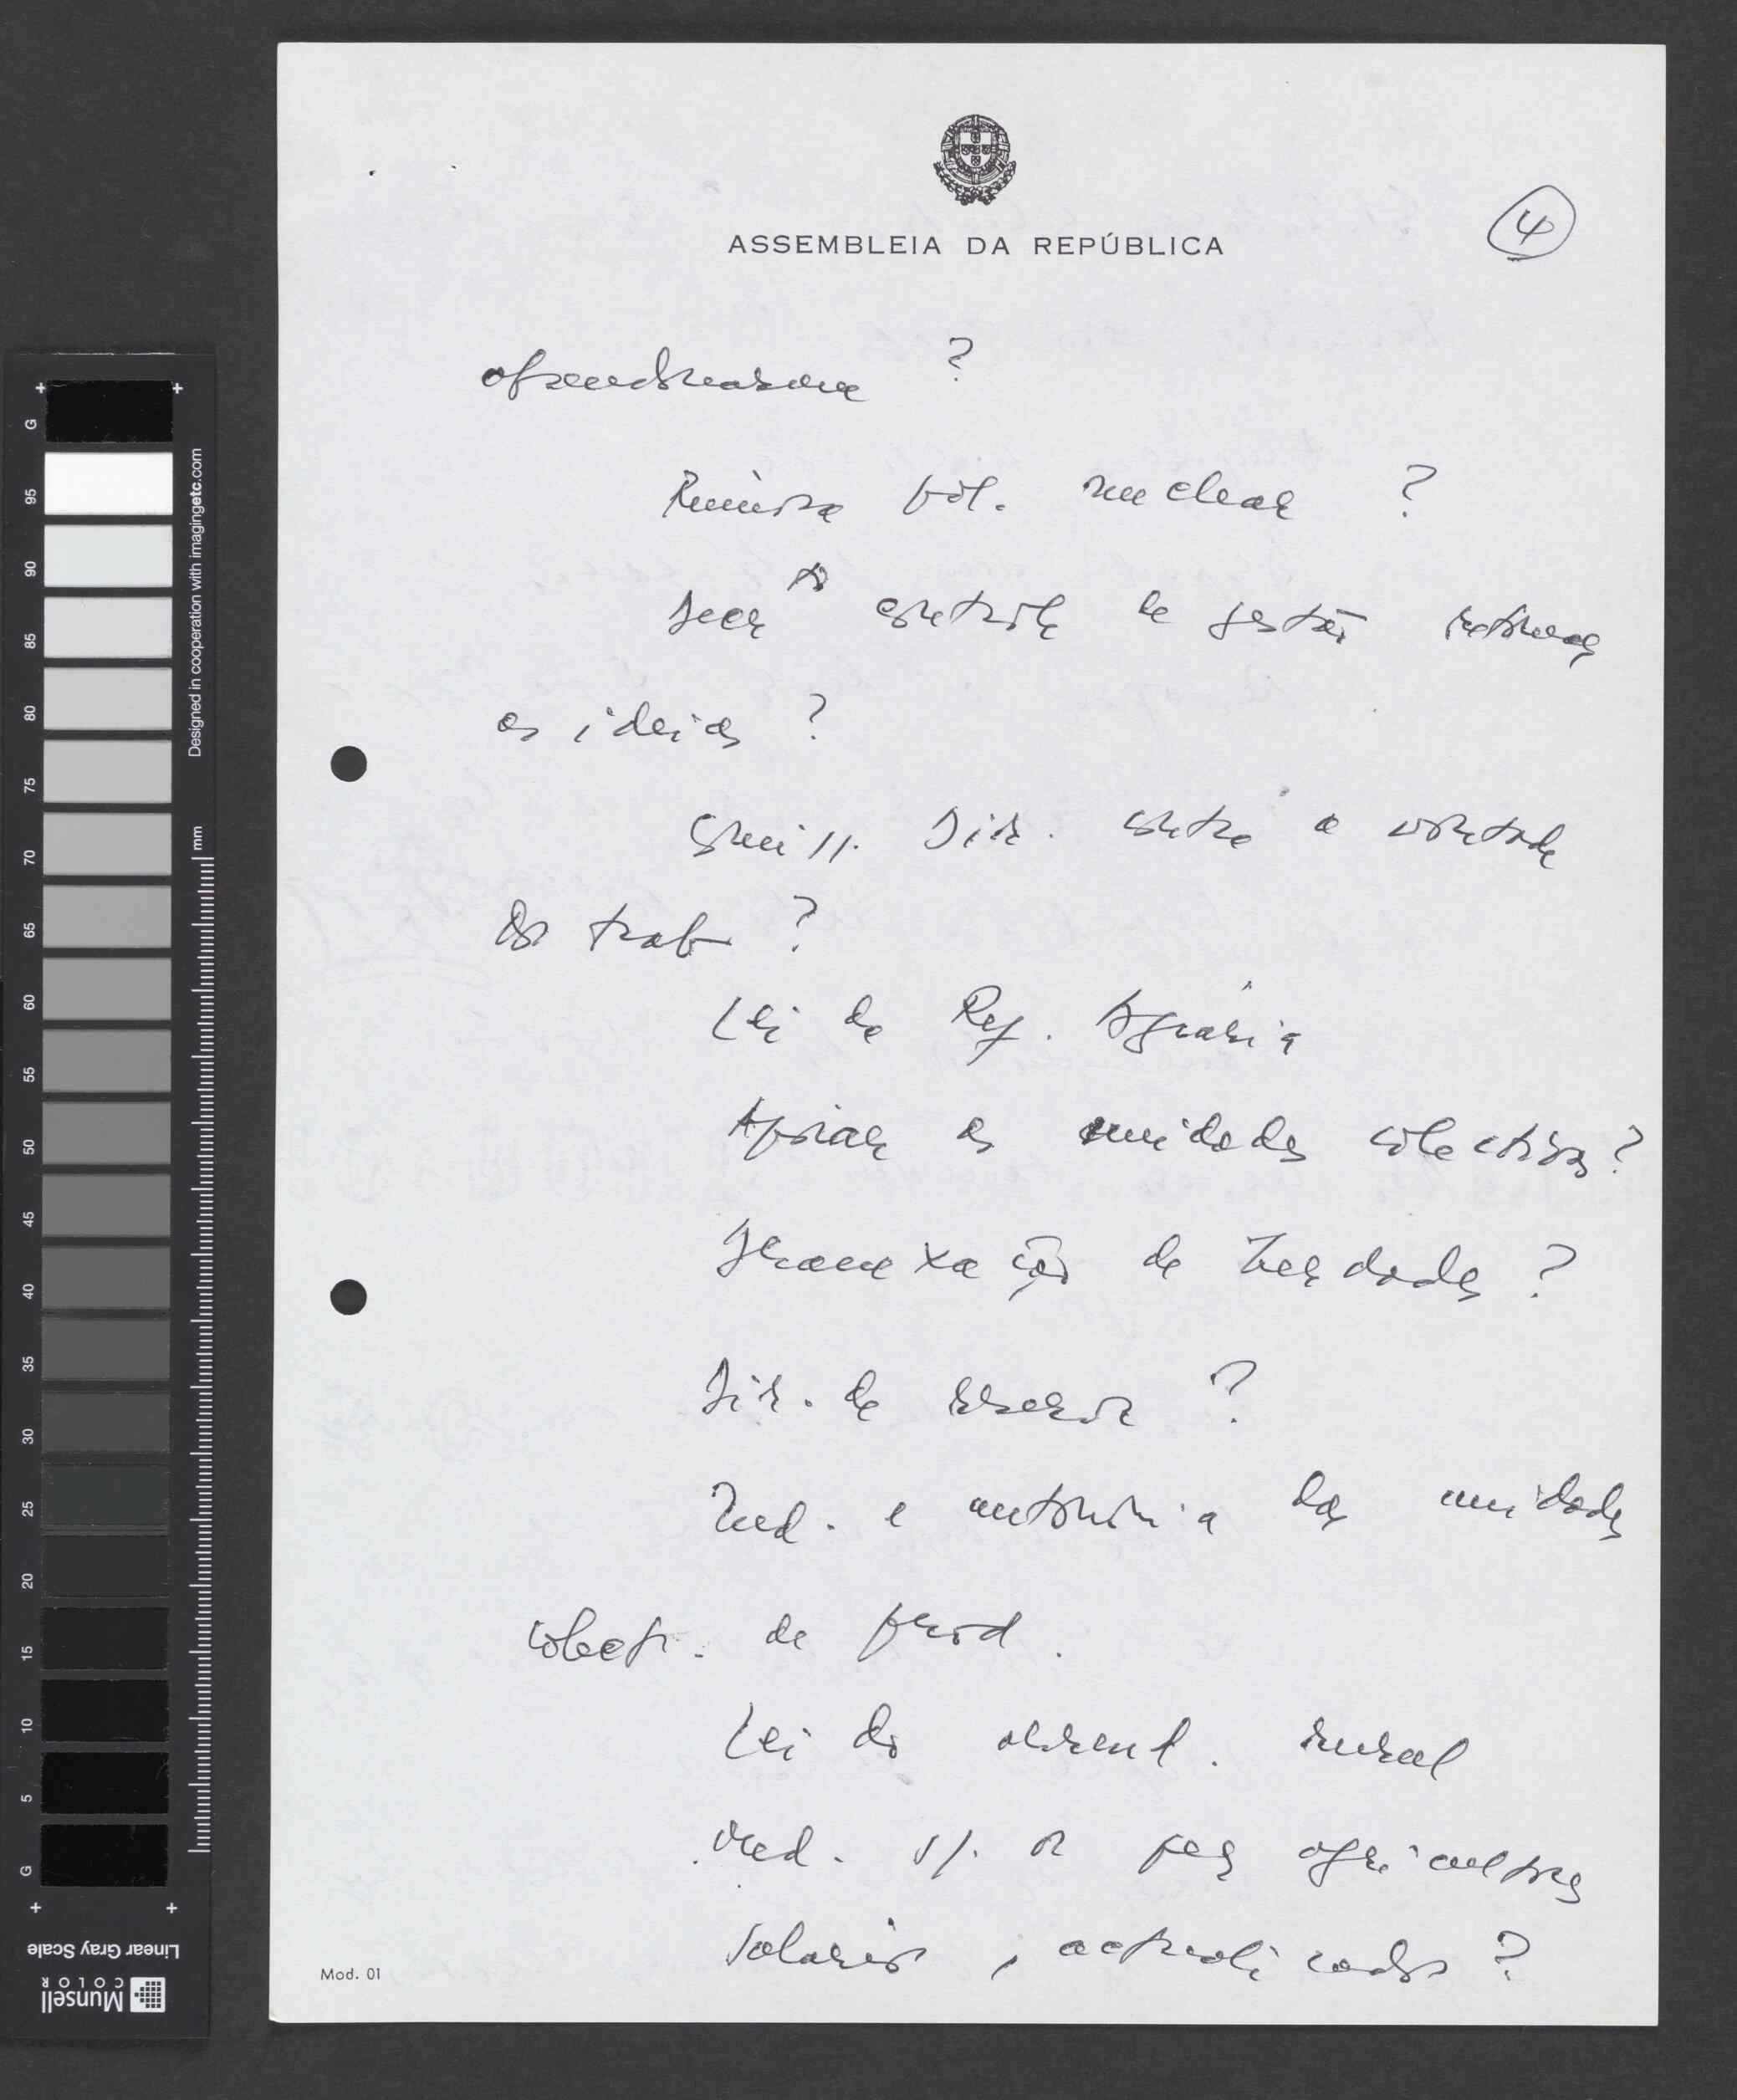 ASSEMBLEIA DA REPÚBLICA
4
?
pol. nuclear ?
controle de gestão
as ideias ?
Comiss. Dir. contra a vontade
dos trab ?
Lei da Ref. Agrária
Apoiar as unidades colectivas ?
de herdades ?
Dir. de reserva ?
Ind. e autonomia das unidades
colect. de prod.
Lei do arrend. rural
cred. p/. os peq agricultores
Salários, actualizados ?
Mod. 01
G 95 90 85 80 75 70 65 60 55 50 45 40 35 30 25 20 15 10 5 G
Designed in cooperation with imagingetc.com
mm
Linear Gray Scale
Munsell
COLOR